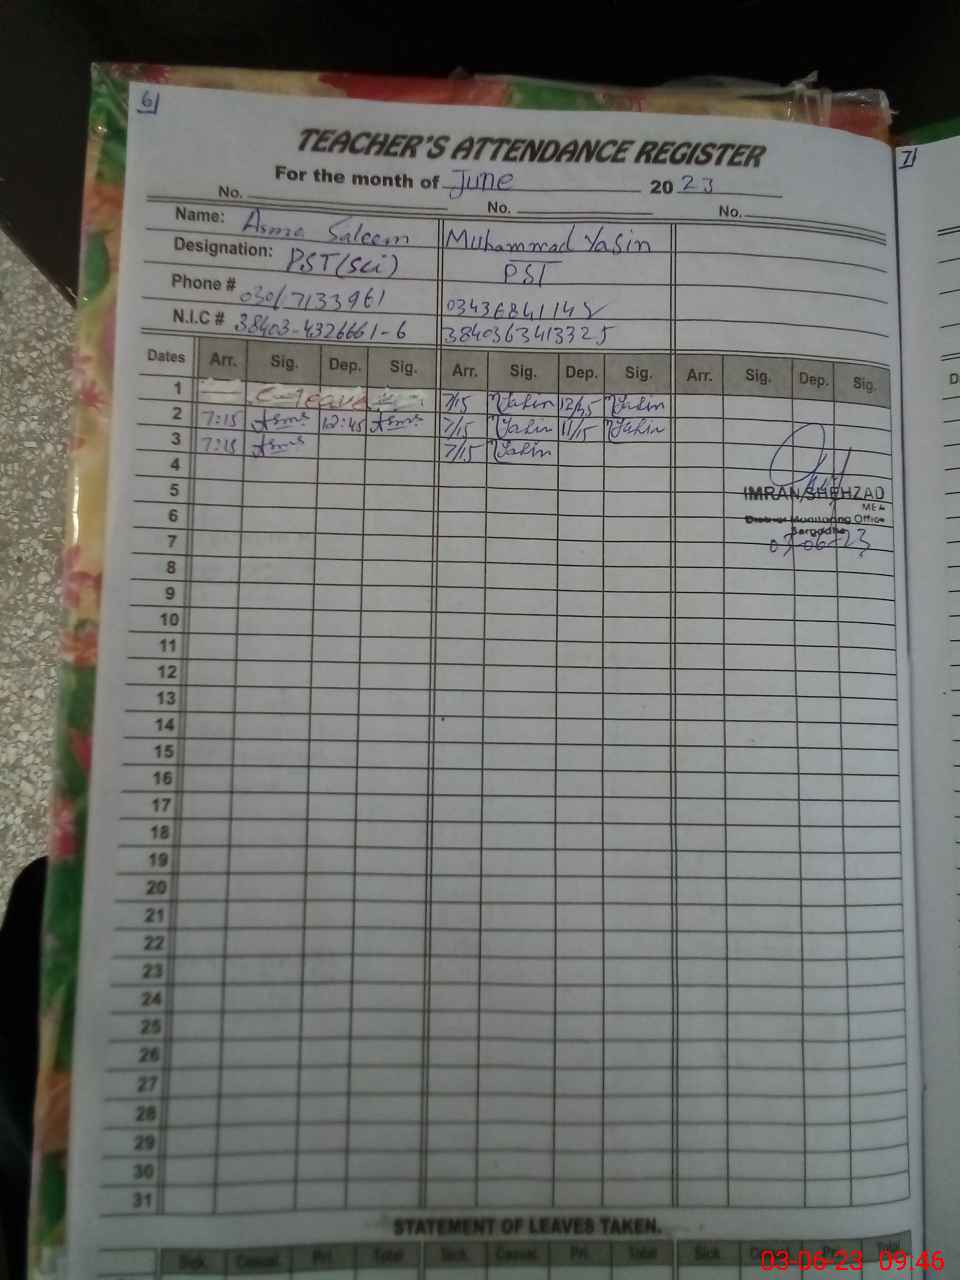 6
TEACHER'S ATTENDANCE REGISTER
7
For the month of June 2023
No. No. No.
Name: Asma Saleem Muhammad Yasin
Designation: PST(Sci) PST
Phone # 03017133961
N.I.C # 38403-4326661-6 3840363413325
Dates Arr. Sig. Dep. Sig. Arr. Sig. Dep. Sig. Arr. Sig. Dep. Sig.
1 C-leave 7/15 Yasin Yasin
2 7:15 Asma 12:45 Asma 7/15 Yasin 11/15 Yasin
3 7:15 Asma 7/15 Yasin
4
5 IMRAN SHEHZAD
MEA
6 District Monitoring Office
Sargodha
7 03-06-23
8
9
10
11
12
13
14
15
16
17
18
19
20
21
22
23
24
25
26
27
28
29
30
31
STATEMENT OF LEAVES TAKEN.
Sick Casual Pri. Total Sick Casual Pri. Total Sick Total
03-06-23 09:46